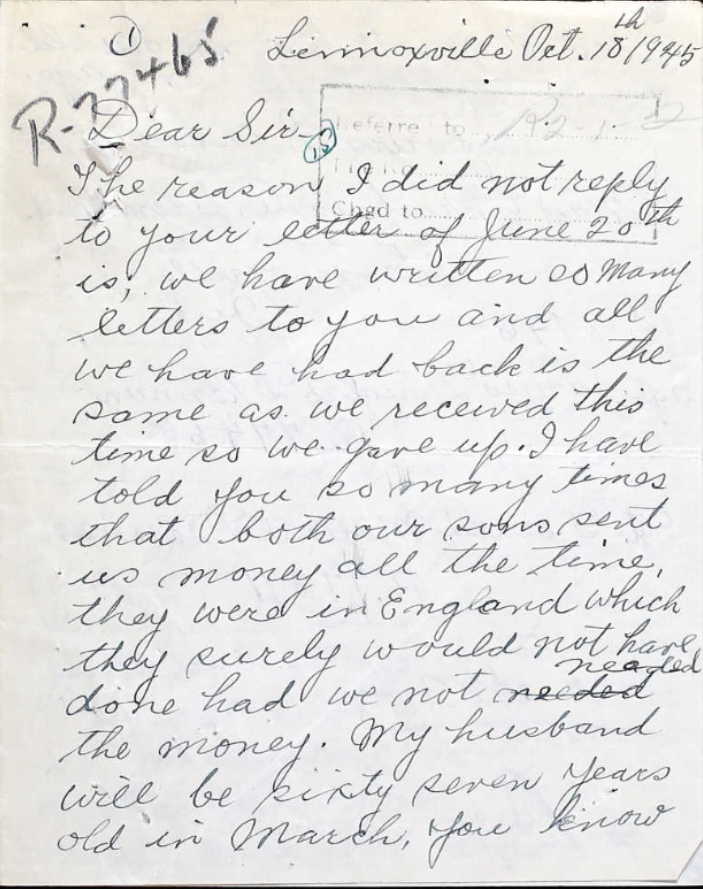 ①
Lennoxville Oct. 18th 1945
R-77465
Dear Sir-
15
Referre to R2-1-
Chgd to
The reason I did not reply
to your letter of June 20th
is, we have written so many
letters to you and all
we have had back is the
same as we received this
time so we gave up. I have
told you so many times
that both our sons sent
us money all the time,
they were in England which
they surely would not have
needed
done had we not needed
the money. My husband
will be sixty seven years
old in March, you know